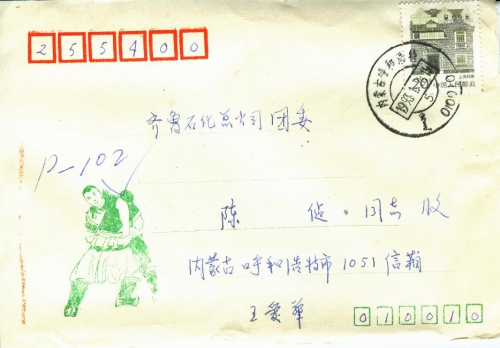 255400
20
上海民居
中国人民邮政
内蒙古呼和浩特
1993
5
010010
齐鲁石化总公司团委
P-102
陈 同志 收
内蒙古呼和浩特市1051信箱
王爱华
010010